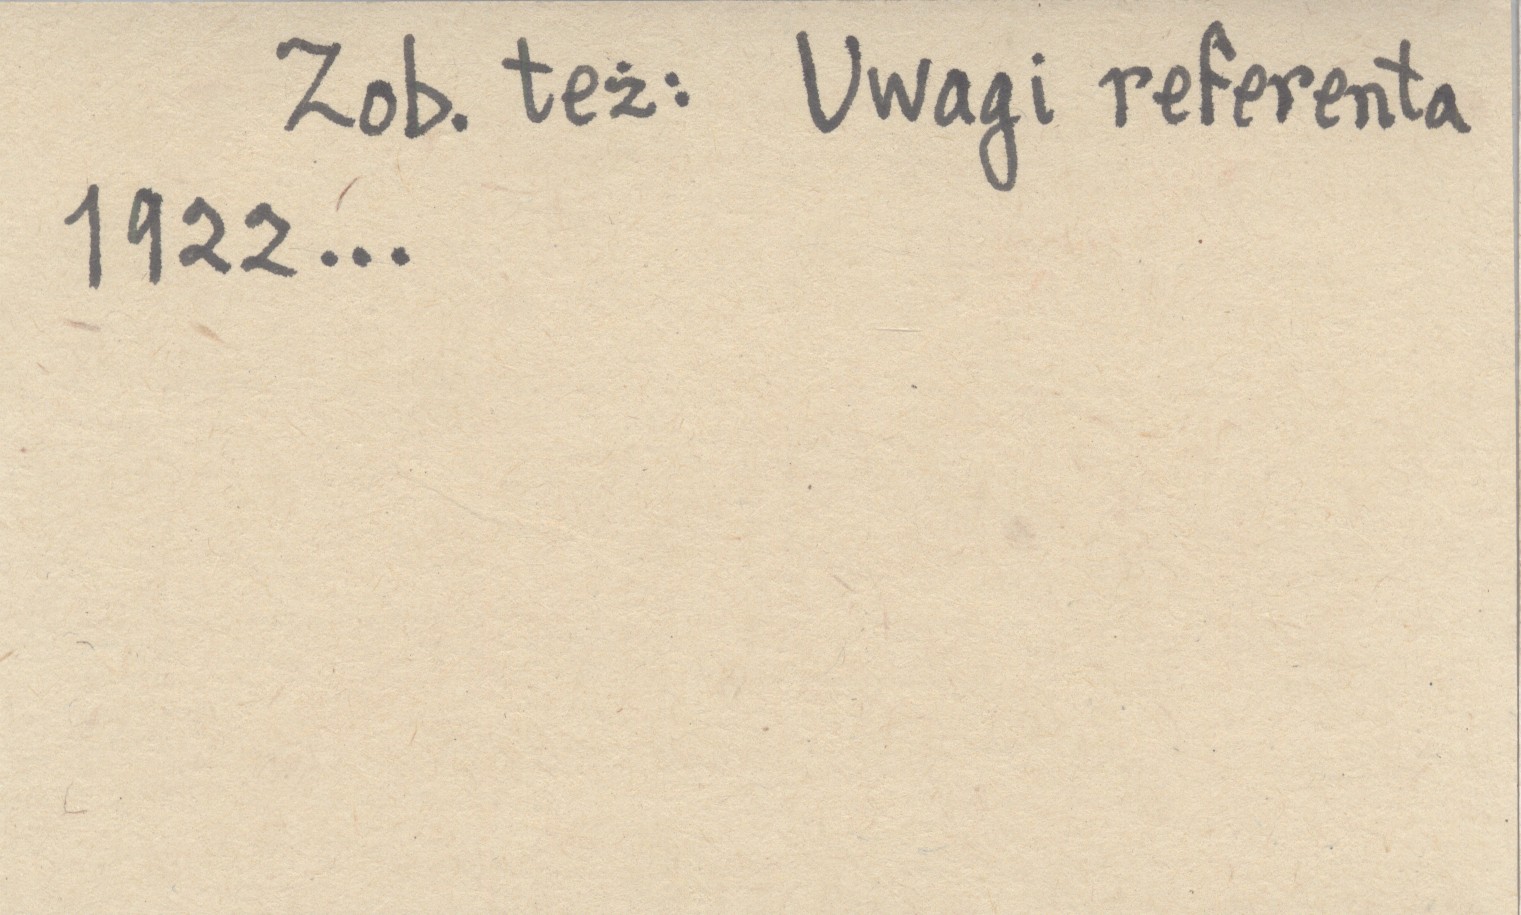 Zob. też: Uwagi referenta
1922...